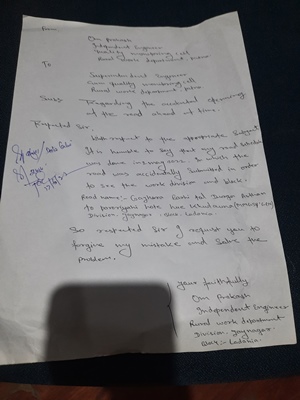 From
Om prakash
Independent Engineer
Quality monitoring cell
Rural works department,
To
Superintendent Engineer
Cum quality monitoring cell
Rural work department patna
Sub:- Regarding the accidental
of the road ahead of time.
Respected Sir,
With respect to the appropriate Subject
It is humble to say that my road
was done in , In which the
road was accidentally Submitted in order
to see the work division and block.
Road name:- Tol Durga Asthan
to hote hue
Division. jaynagar - block. Ladania.
So respected Sir I request you to
forgive my mistake and Solve the
problem.
yours faithfully
Om Prakash
Independent Engineer
Rural work department
Division. jaynagar.
Block:- Ladania